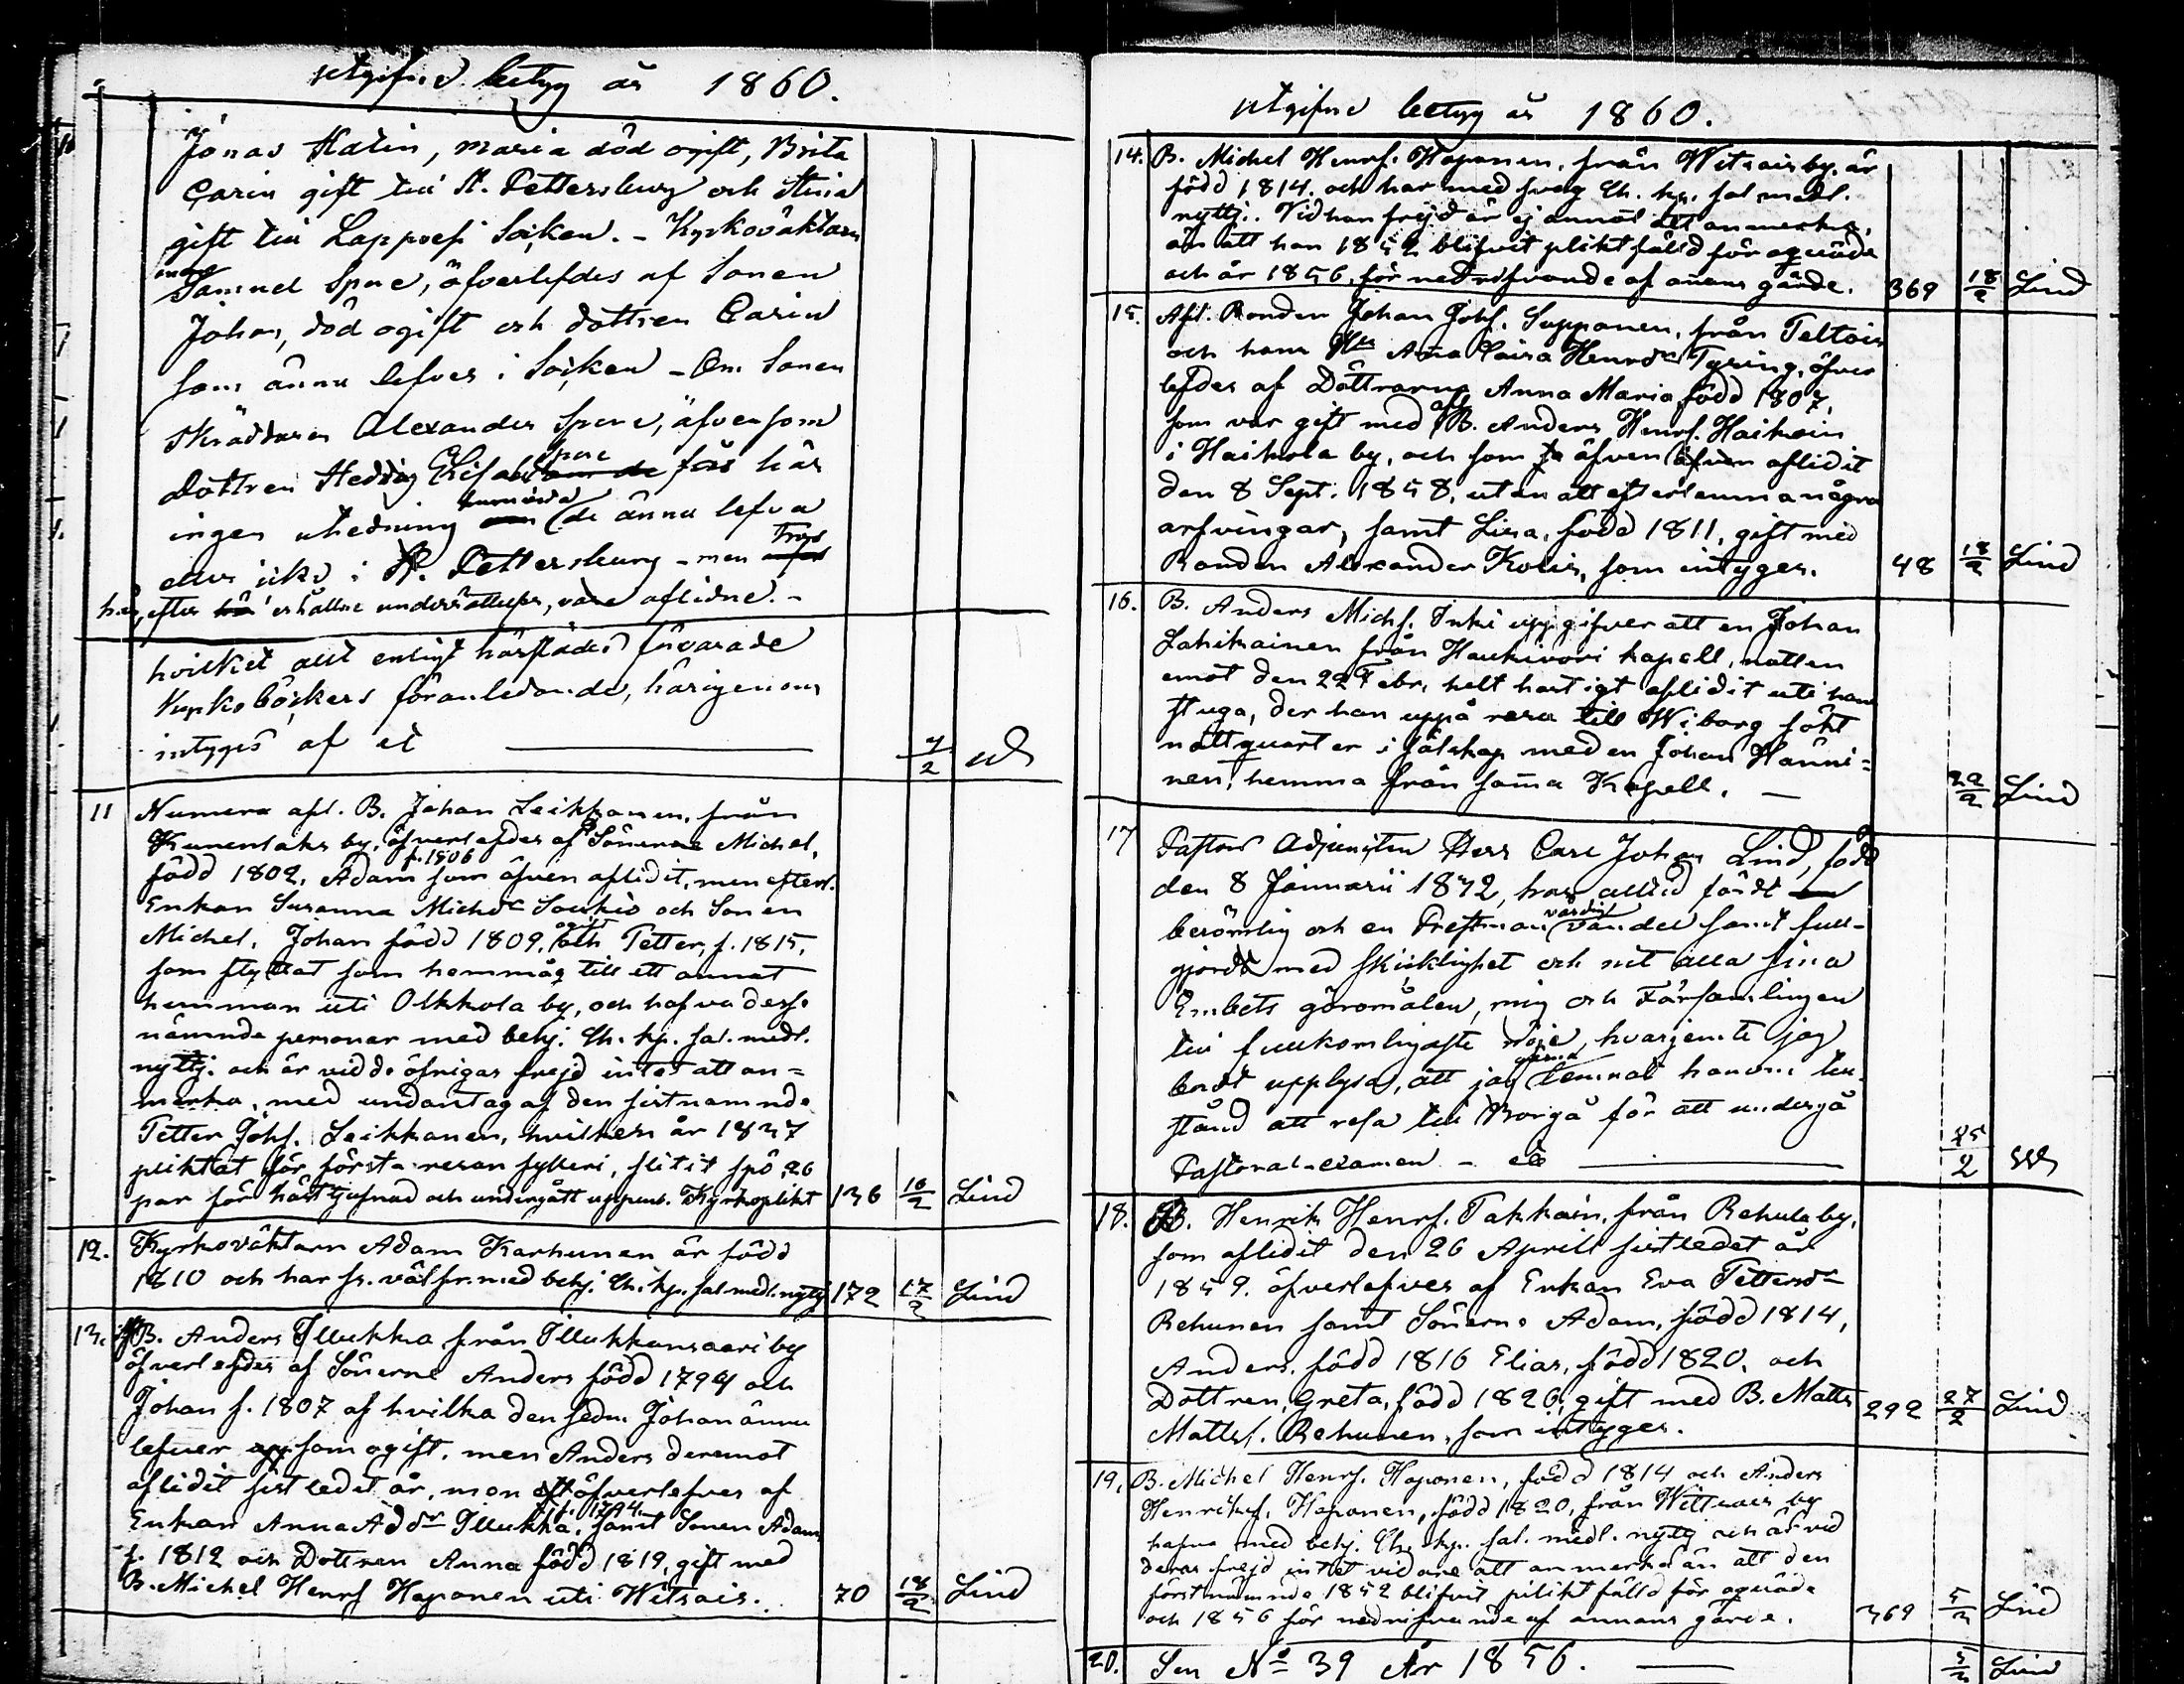 utgifne betyg år 1860.
Jonas Halin, Maria död ogift, Brita
Carin gift till St. Pettersburg och Stina
gift till Lappvesi Socken. – Kyrkoväktaren
Samuel Spore, öfverlefdes af Sonen
Johan, död ogift och dottren Carin
som ännu lefver i Socken – Om Sonen
Skräddaren Alexander Spore, äfvensom
Dottren Hedvig Elisabet Spore fås här
ingen utredning huruvida de ännu lefva
eller icke i St. Pettersburg – men tros
här, efter erhållne underrättelser, vara aflidne. –
hvilket allt enligt härstädes förvarade
Kyrkoböckers föranledande, härigenom
intygas af et 7/2
11 Numera afl. B. Johan Leikkanen, från
Kunenlaks by, öfverlefdes af Sönerne Michel,
född 1802, Adam f. 1806 som äfven aflidit, men efterl.
Enkan Susanna Michsdr Soukio och Sonen
Michel, Johan född 1809, och Petter, f. 1815,
som flyttat som hemmåg till ett annat
hemman uti Olkkola by, och hafva desse
nämnde personer med behj. Ch. kp. sal. medl.
nyttj. och är vid de öfrigas frejd intet att an=
merka, med undantag af den sistnamnde
Petter Johs. Leikkanen, hvilken år 1837
pliktat för första resan fylleri, slitit spö 26
par för hästtjufnad och undergått uppenb. Kyrkoplikt 136 16/2 Lind
12. Kyrkoväktarn Adam Karhunen är född
1810 och har fr. väl fr. med behj. Ch. kp. sal. medl. nyttj 172 17/2 Lind
13. B. Anders Illukka från Illukkansaari by
öfverlefdes af Sönerne Anders född 1794 och
Johan f. 1807 af hvilka den sedn. Johan ännu
lefver som ogift, men Anders deremot
aflidit sistledit år, men öfverlefves af
Enkan Anna Addr Illukka, f. 1794, samt Sonen Adam
f. 1812 och Dottren Anna född 1819, gift med
B. Michel Henrs Haponen uti Witsais. 70 18/2 Lind
utgifne betyg år 1860.
14. B. Michel Henrs. Haponen, från Witsais by, är
född 1814. och har med svag Ch. kp. sal. medl.
nyttj. Vid han frejd är ej annat att anmerka,
än att han 1852 blifvit pliktfälld för oqväde
och år 1856, för nedrifvande af annans gärde. 369 18/2 Lind
15. Afl. Bonden Johan Johs. Supponen, från Peltois
och hans Hu Anna Caisa Henrdr Tyring, öfver
lefdes af Döttrarne Anna Maria född 1807,
som var gift med afl. B. Anders Henrs. Haikoin
i Haikola by, och som äfven aflidit
den 8 Sept. 1858, utan att efterlemna några
arfvingar, samt Lisa, född 1811, gift med
Bonden Alexander Kolis, som intyges. 48 18/2 Lind
16. B. Anders Michs. Inki uppgifver att en Johan
Lahikainen från Haukivori kapell, natten
emot den 22 Febr. helt hastigt aflidit uti hans
stuga, der han uppå resa till Wiborg sökt
nattquarter i sälskap med en Johan Hänni=
nen, hemma från samma Kapell. – 22/2 Lind
17 Pastors Adjunkten Herr Carl Johan Lind, född
den 8 Januarii 1832, har alltid fördt
berömlig och en Prestman värdig vandel samt full-
gjordt med skicklighet och nit alla sina
Embets göromålen, mig och Församlingen
till fullkomligaste nöje, hvarjemte jag
bordt upplysa, att jag gerna lemnat honom till-
stånd att resa till Borgå för att undergå
Pastoral-examen – 25/2
18. B. Henrik Henrs. Takkain, från Rehula by,
som aflidit den 26 Aprill sistledet år
1859. öfverlefves af Enkan Eva Pettersdr
Rehunen samt Sönerne Adam, född 1814,
Anders, född 1816 Elias, född 1820, och
Dottren, Greta, född 1826, gift med B. Matts
Mattss. Rehunen, som intyges. 292 27/2 Lind
19. B. Michel Henrs. Haponen, född 1814 och Anders
Henrikss. Haponen, född 1820, från Wittsais by
hafva med behj. Ch. kp. sal. medl. nyttj och är vid
deras frejd intet vidare att anmerka än att den
förstnämnde 1852 blifvit pliktfälld för oqväde
och 1856 för nedrifvande af annans gärde. 369 5/3 Lind
20. Sen No 39 År 1856. 5/3 Lind